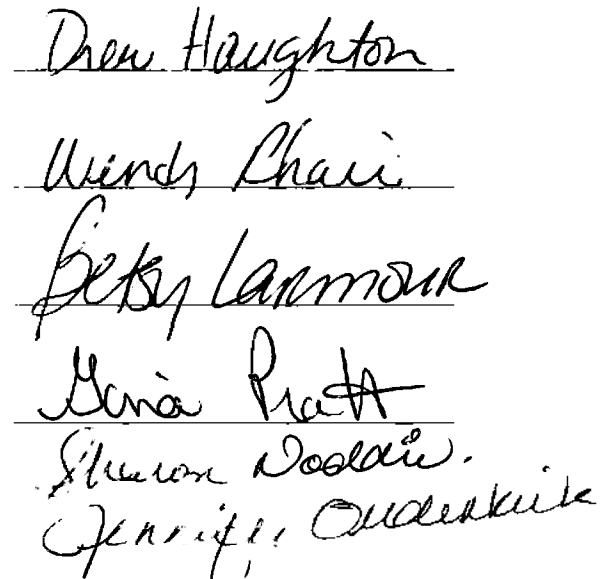 Drew Haughton
Wendy
Betsy Larmour
Gina Pratt
Sharon Doddie.
Jennifer Ouderkirk